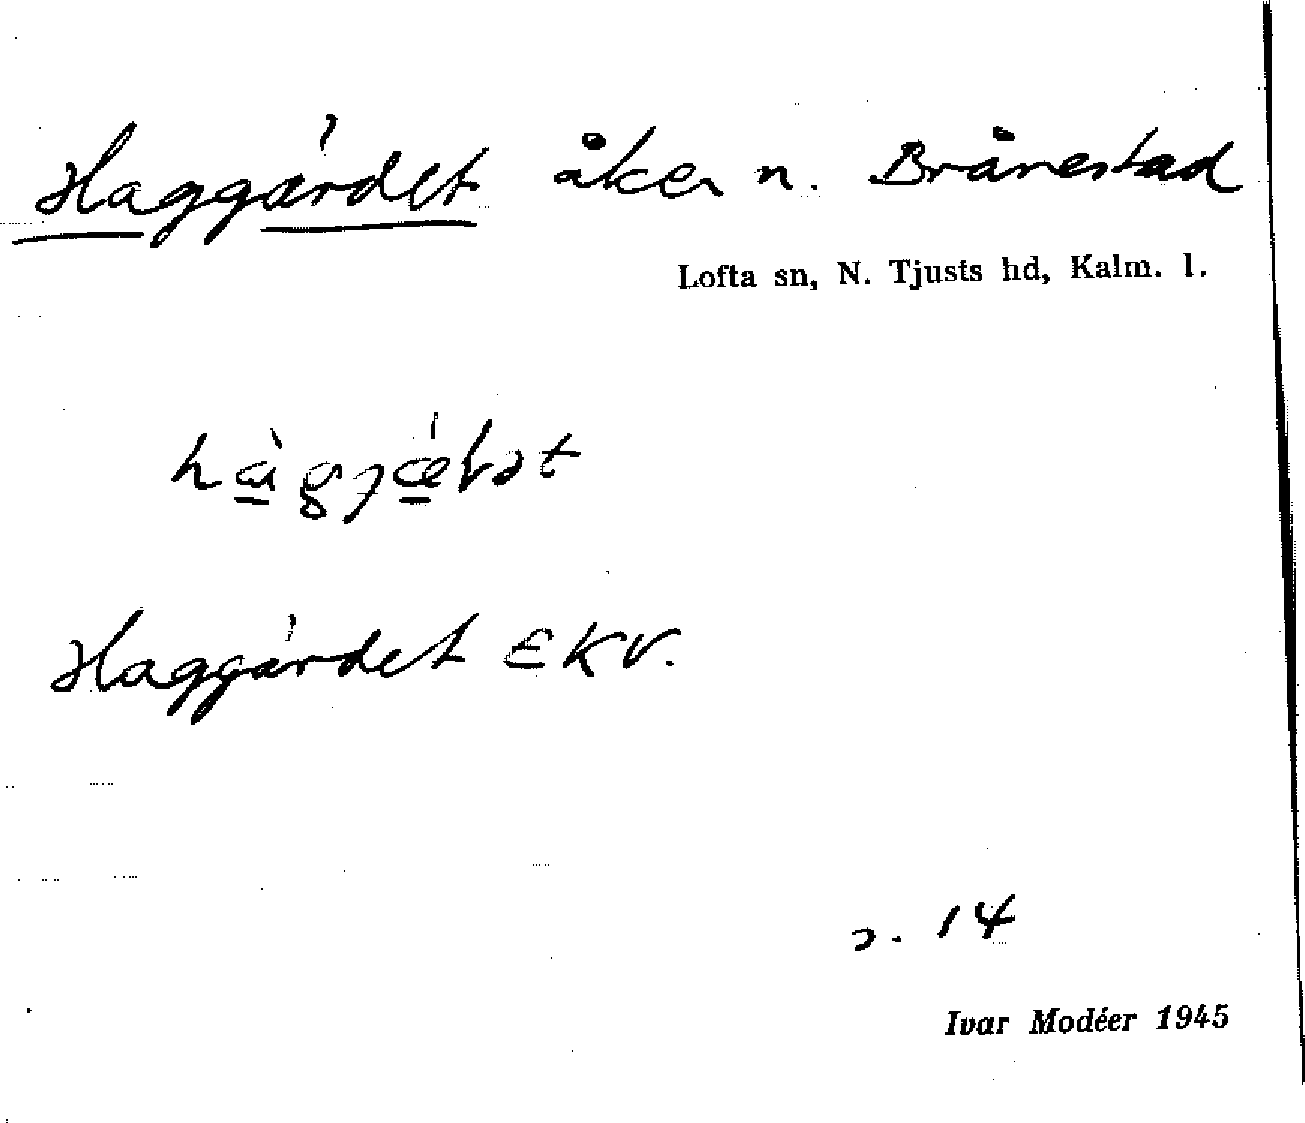 Haggärdet åker n. Brånestad
Lofta sn, N. Tjusts hd, Kalm. l.
Haggärdet EKV.
s. 14
Ivar Modéer 1945